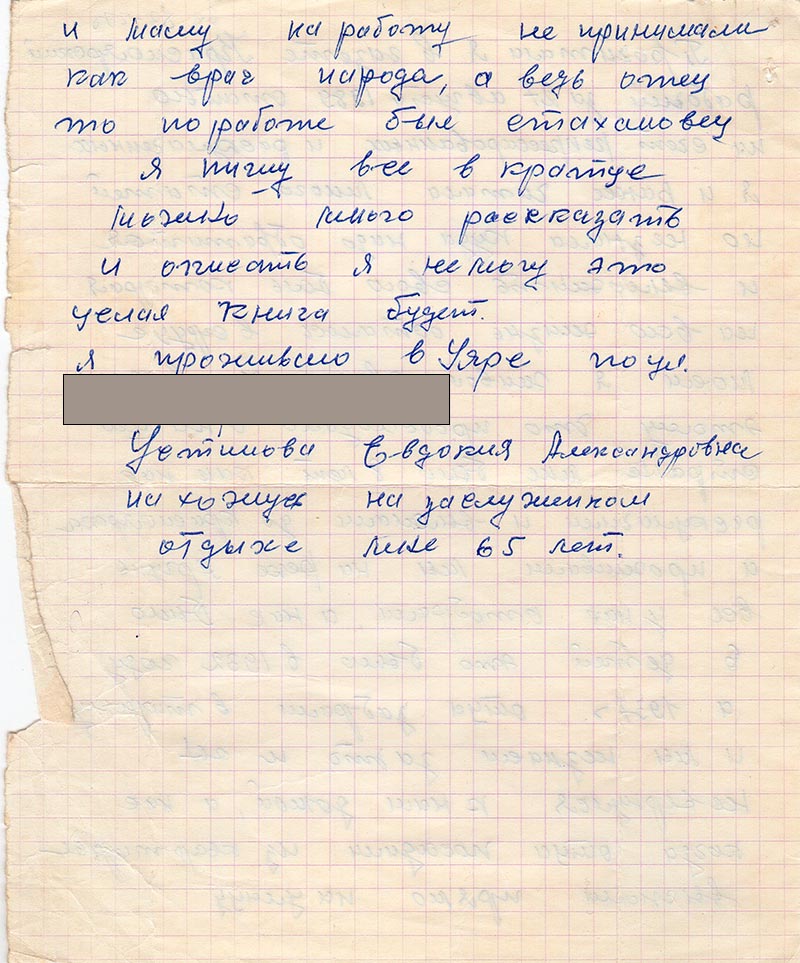 и маму на работу не принимали
как врач народа, а ведь отец
то по работе был стахановец
я пишу все в кратце
можно много рассказать
и описать я не могу это
целая книга будет.
я проживаю в Уяре по ул.
Устимова Евдокия Александровна
нахожусь на заслуженном
отдыхе мне 65 лет.